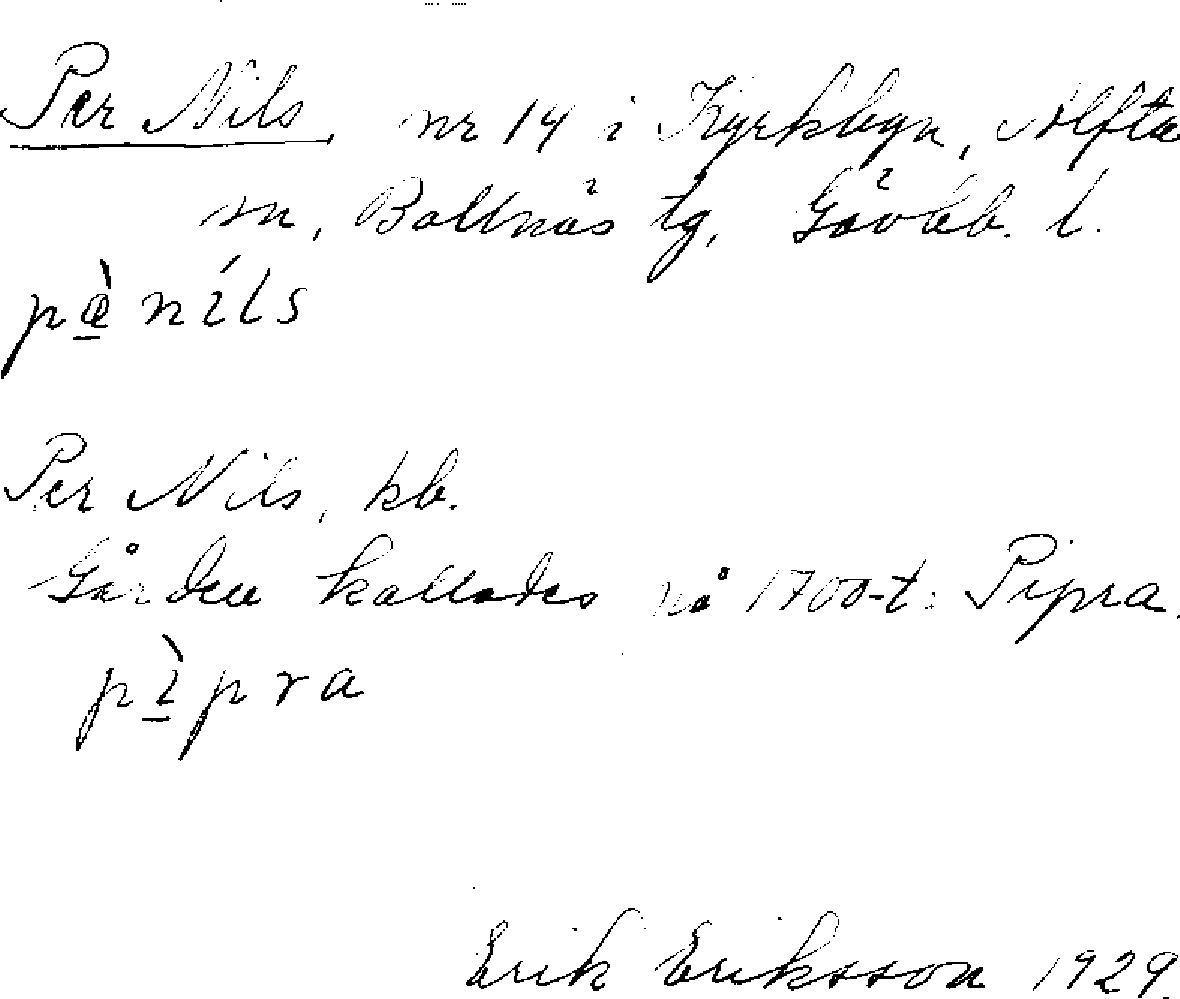 Per Nils, nr 14 i Kyrkbyn, Alfta
sn, Bollnäs tg, Gävleb. l.
pæ̀ níls
Per Nils, kb.
Gården kallades på 1700-t: Pipra.
pìpra
Erik Eriksson 1929.